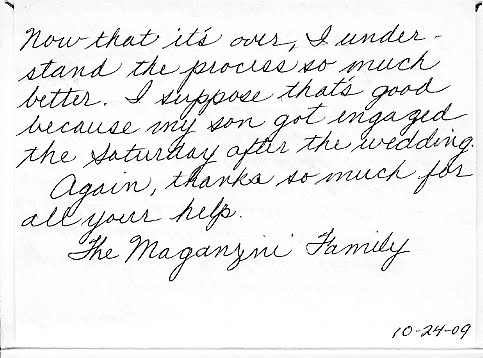 Now that it's over, I under-
stand the process so much
better. I suppose that's good
because my son got engaged
the Saturday after the wedding.
Again, thanks so much for
all your help.
The Maganzini Family
10-24-09